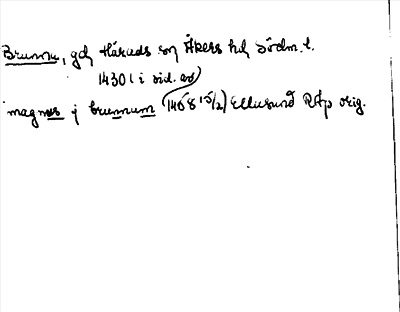 Brunna, gd Härads sn Åkers hd Södm. l.
1430 l i sid. av
magnus j brunnum 1408 15/2) Ellusund RAp orig.